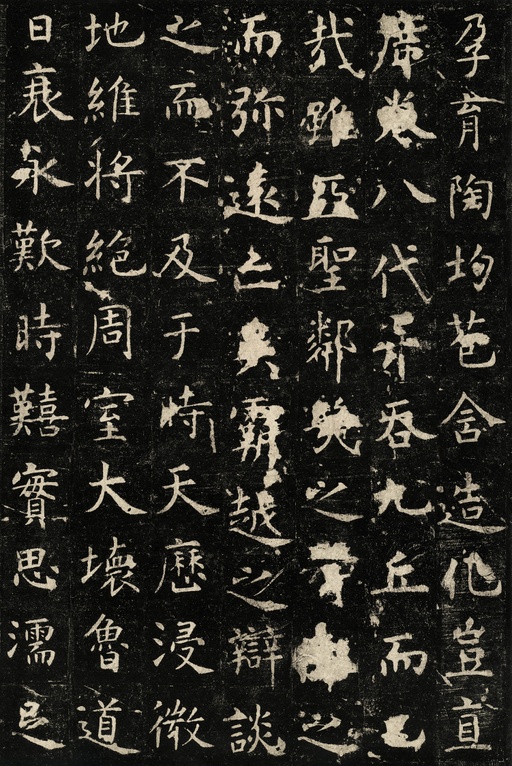 孕育陶均苞含造化豈直
席卷八代并吞九丘而已
哉雖亞聖鄰幾之之
而弥遠亡吳霸越之辯談
之而不及于時天歷浸微
地維將絕周室大壞魯道
日衰永歎時囏實思濡足